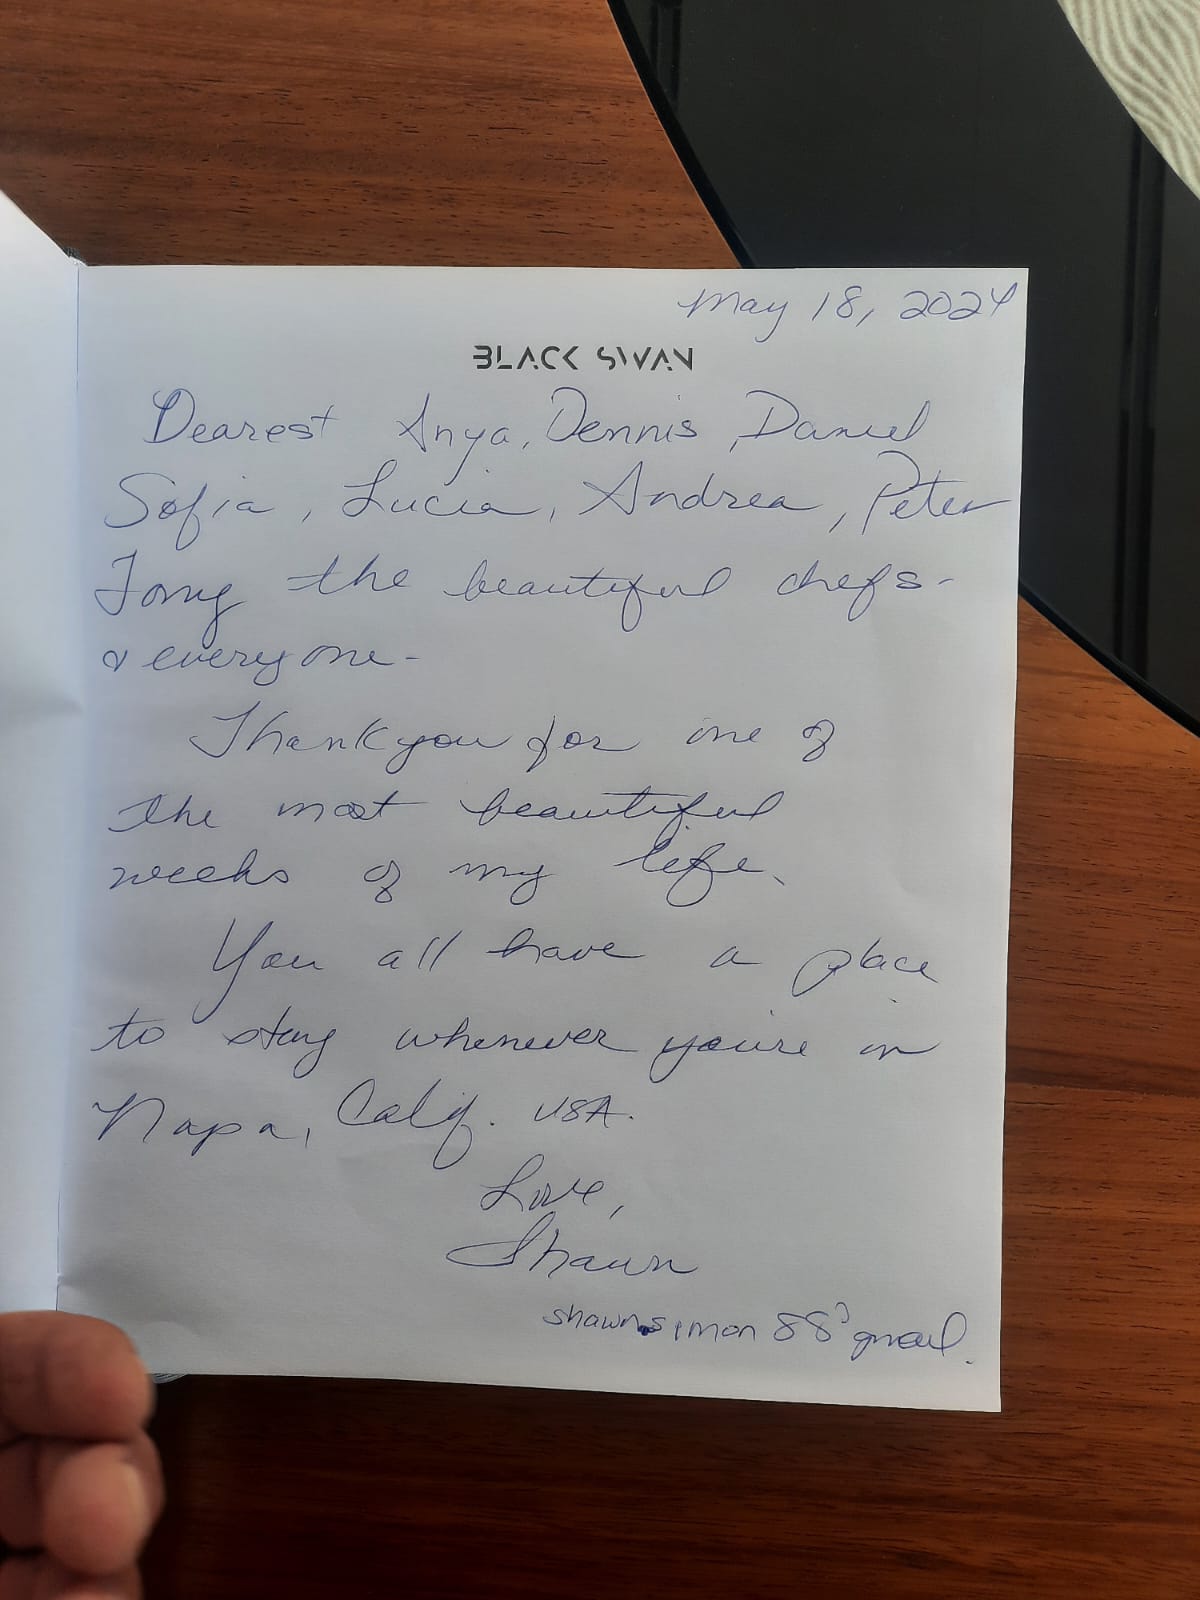 May 18, 2024
BLACK SWAN
Dearest Anya, Dennis, Daniel
Sofia, Lucia, Andrea, Peter
the beautiful chefs-
& everyone-
Thank you for one of
the most beautiful
weeks of my life.
You all have a place
to stay whenever you're in
Napa, Calif. USA.
Love,
Shawn
shawnsimon 88 gmail.